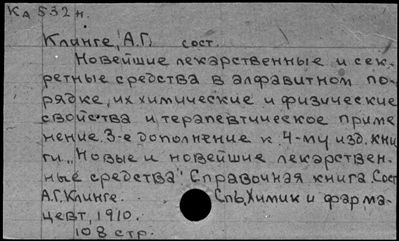 Кд 532 н.
Клинге, А.Г. сост.
Новейшие лекарственные и сек-
ретные средства в алфавитном по-
рядке, их химические и физические
свойства и терапевтическое приме
нение. 3-е дополнение к 4-му изд. кни
ги „Новые и новейшие лекарствен-
ные средства". Справочная книга. Сост
А.Г. Клинге. Спб, Химик и фарма-
цевт, 1910.
108 стр.